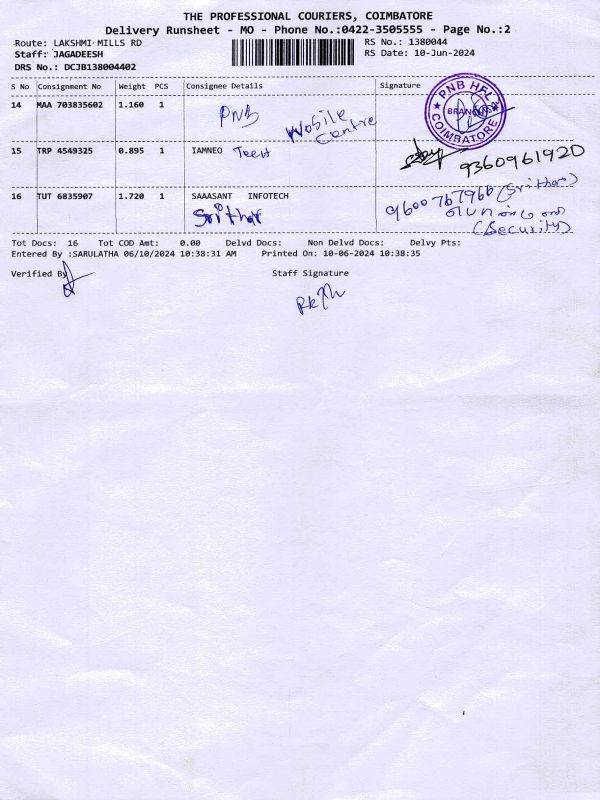 THE PROFESSIONAL COURIERS, COIMBATORE
Delivery Runsheet - MO - Phone No.:0422-3505555 - Page No.:2
Route: LAKSHMI MILLS RD RS No.: 1380044
Staff: JAGADEESH RS Date: 10-Jun-2024
DRS No.: DCJB138004402
S No Consignment No Weight PCS Consignee Details Signature
14 MAA 703835602 1.160 1 PNB Mobile Centre
PNB HFL BRANCH COIMBATORE
15 TRP 4549325 0.895 1 IAMNEO Tech 9360961920
16 TUT 6835907 1.720 1 SAAASANT INFOTECH 9600767966 (Srithar)
Srithar
(Security)
Tot Docs: 16 Tot COD Amt: 0.00 Delvd Docs: Non Delvd Docs: Delvy Pts:
Entered By :SARULATHA 06/10/2024 10:38:31 AM Printed On: 10-06-2024 10:38:35
Verified By Staff Signature